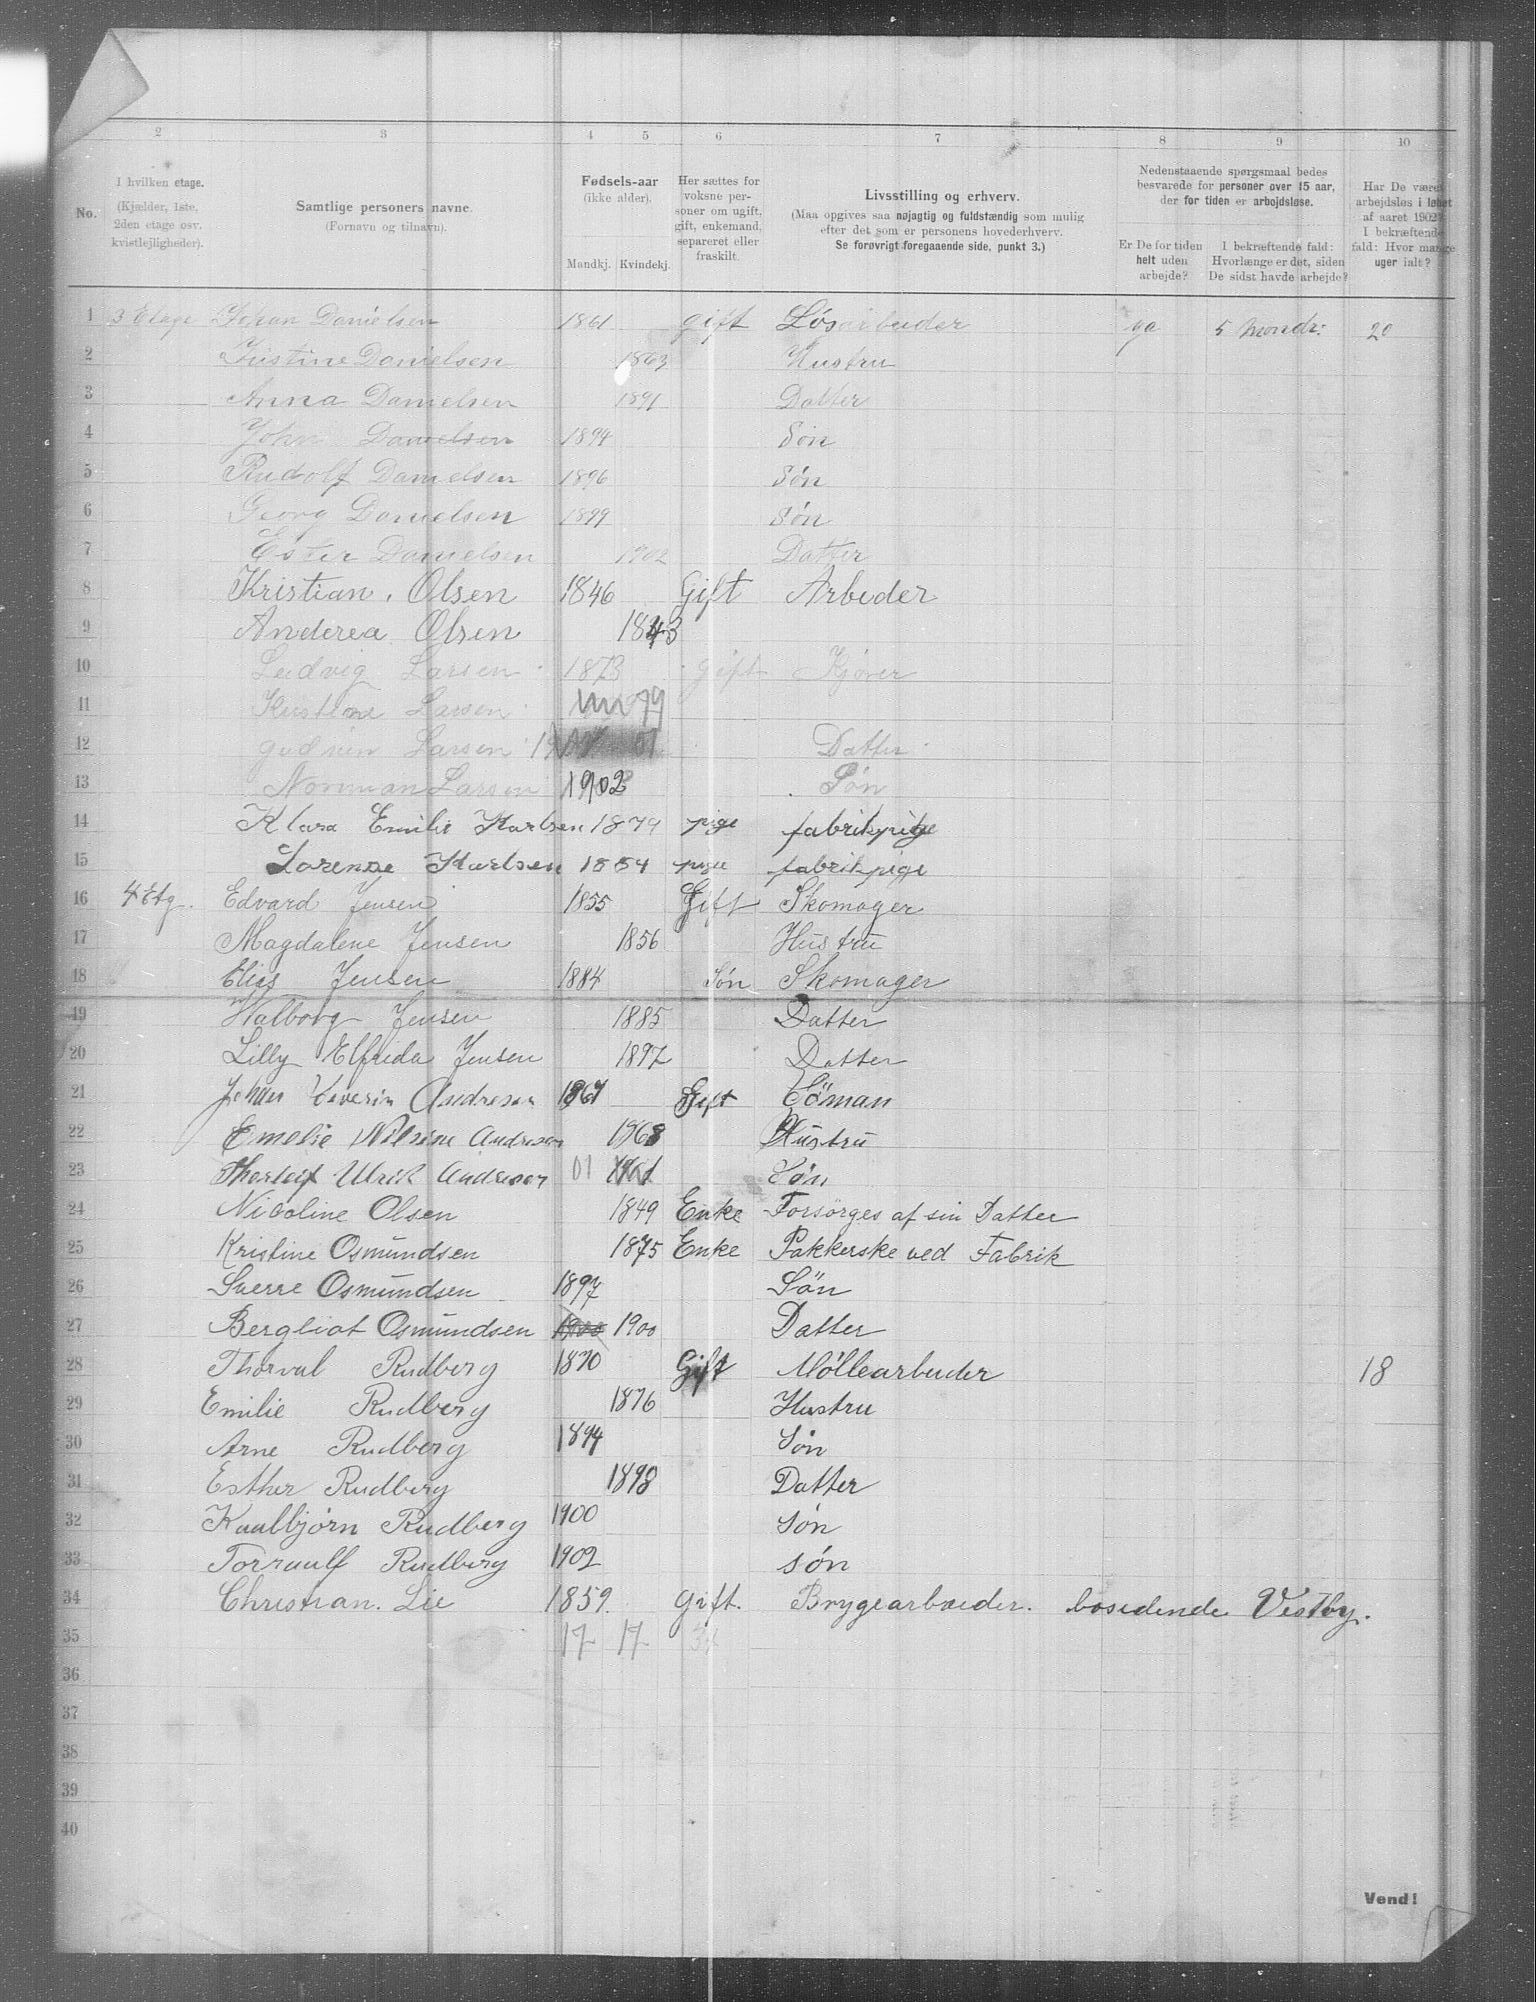 2 3 4 5 6 7 8 9 10
No.
I hvilken etage. (Kjælder, 1ste, 2den etage osv. kvistlejligheder).
Samtlige personers navne. (Fornavn og tilnavn).
Fødsels-aar (ikke alder).
Mandkj. Kvindekj.
Her sættes for voksne personer om ugift, gift, enkemand, separeret eller fraskilt.
Livsstilling og erhverv.
(Maa opgives saa nøjagtig og fuldstændig som mulig efter det som er personens hovederhverv. Se forøvrigt foregaaende side, punkt 3.)
Nedenstaaende spørgsmaal bedes besvarede for personer over 15 aar, der for tiden er arbejdsløse.
Er De for tiden helt uden arbejde?
I bekræftende fald: Hvorlænge er det, siden De sidst havde arbejde?
Har De været arbejdsløs i løbet af aaret 1902? I bekræftende fald: Hvor mange uger ialt?
1 3 Etage Johan Danielsen 1861 gift Løsarbeider ya 5 Mondr: 20
2 Justine Danielsen 1863 Hustru
3 Anna Danielsen 1891 Datter
4 John Danielsen 1894 Søn
5 Rudolf Danielsen 1896 Søn
6 Georg Danielsen 1899 Søn
7 Ester Danielsen 1902 Datter
8 Kristian. Olsen 1846 Gift Arbeder
9 Anderea Olsen 1843
10 Ludvig Larsen 1873 gift Kjører
11 Larsen 79
12 Larsen 01 Datter
13 Norman Larsen 1902 Søn
14 Klara Emilie Karlsen 1879 pige fabrikpige
15 Lorense Karlsen 1884 pige fabrikpige
16 4 Etg. Edvard Jensen 1855 Gift Skomager
17 Magdalene Jensen 1856 Hustru
18 Elias Jensen 1884 Søn Skomager
19 Walborg Jensen 1885 Datter
20 Lilly Elfrida Jensen 1897 Datter
21 Johan Severin Andresen 1867 Gift Söman
22 Emelie Nilsine Andresen 1868 Hustru
23 Thorleif Ulrik Andresen 01 Søn
24 Nicoline Olsen 1849 Enke Forsørges af sin Datter
25 Kristine Osmundsen 1875 Enke Pakkerske ved Fabrik
26 Sverre Osmundsen 1897 Sön
27 Bergliot Osmundsen 1900 1900 Datter
28 Thorval Rudberg 1870 Gift Møllearbeider 18
29 Emilie Rudberg 1876 Hustru
30 Arne Rudberg 1894 Søn
31 Esther Rudberg 1898 Datter
32 Kaalbjørn Rudberg 1900 Søn
33 Torraulf Rudberg 1902 søn
34 Christian. Lie 1859. gift. Brygearbæider. bosedende Vestby.
35 17 17 34
36
37
38
39
40
Vend!